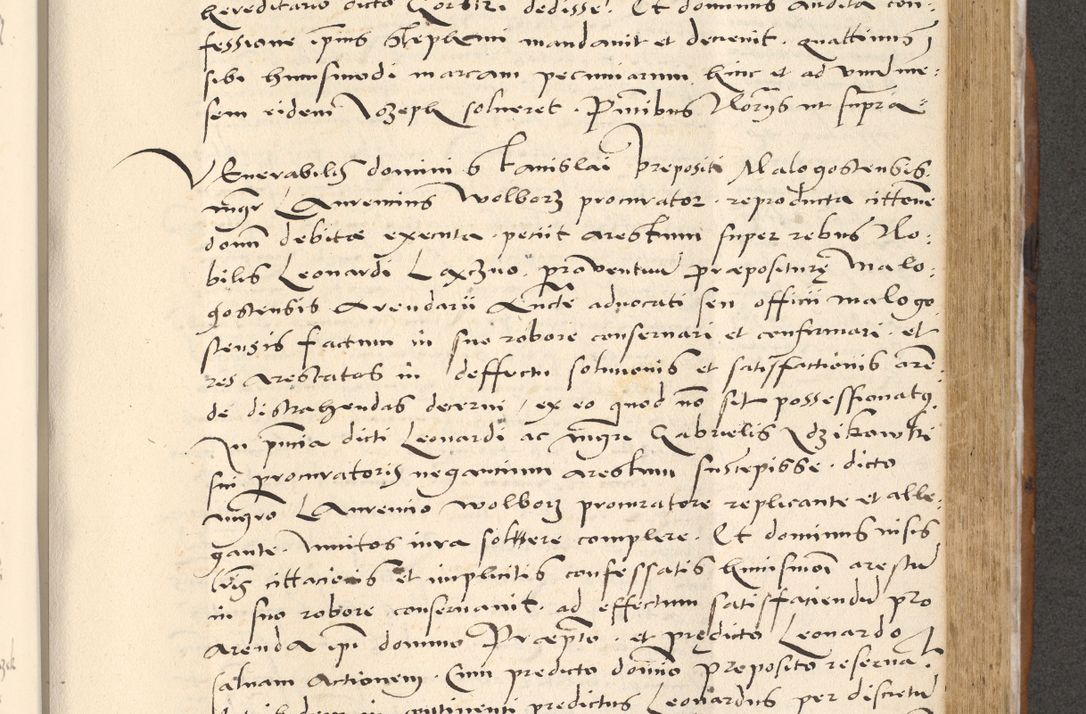 hereditario dicto Gorbizi dedisse. Et dominus audita con-
fessione ip̃ius Stephani mandavit et decrevit. quattinus
sibi huiusmodi marcam pecuniarum hinc et ad unū me-
sem eidem Jozeph solveret. Pn̄tibus Notarijs ut supra-
VEnerabilis domini Stanislai Prepositi Malogostensis
mḡr Laurencius Wolborz procurator. reproducta cittōne
domī debitæ executa. petiit arestum super rebus No-
bilis Leonardi Laxczno. proventuū præposituræ Malo-
gostensis Arendarii Aucte advocati seu officii malogo
stensis factum in suo robore conservari et confirmari. et
res arestatas in deffectu solutionis et satisfactionis aren-
de distrahendas decerni, ex eo quod nō sit possessionatq,
In pn̄cia dicti Leonardi ac mḡri Gabrielis Idzikowski
sui procuratoris negancium arestum suscepisse. dicto
mḡro Laurencio Wolborz procuratore replicante et alle-
gante. unitos iura solvere complere. Et dominus visis
lr̄is cittacionis et implicitis confessatis huiusmōi arestū
in suo robore conservavit. ad effectum satisfaciendū pro
arenda ip̄i domino Præp̄to. et prędicto Leonardo
salvam actionem. Cum predicto domīo Preposito reserva.
in continenti predictus Leonardus per discretū